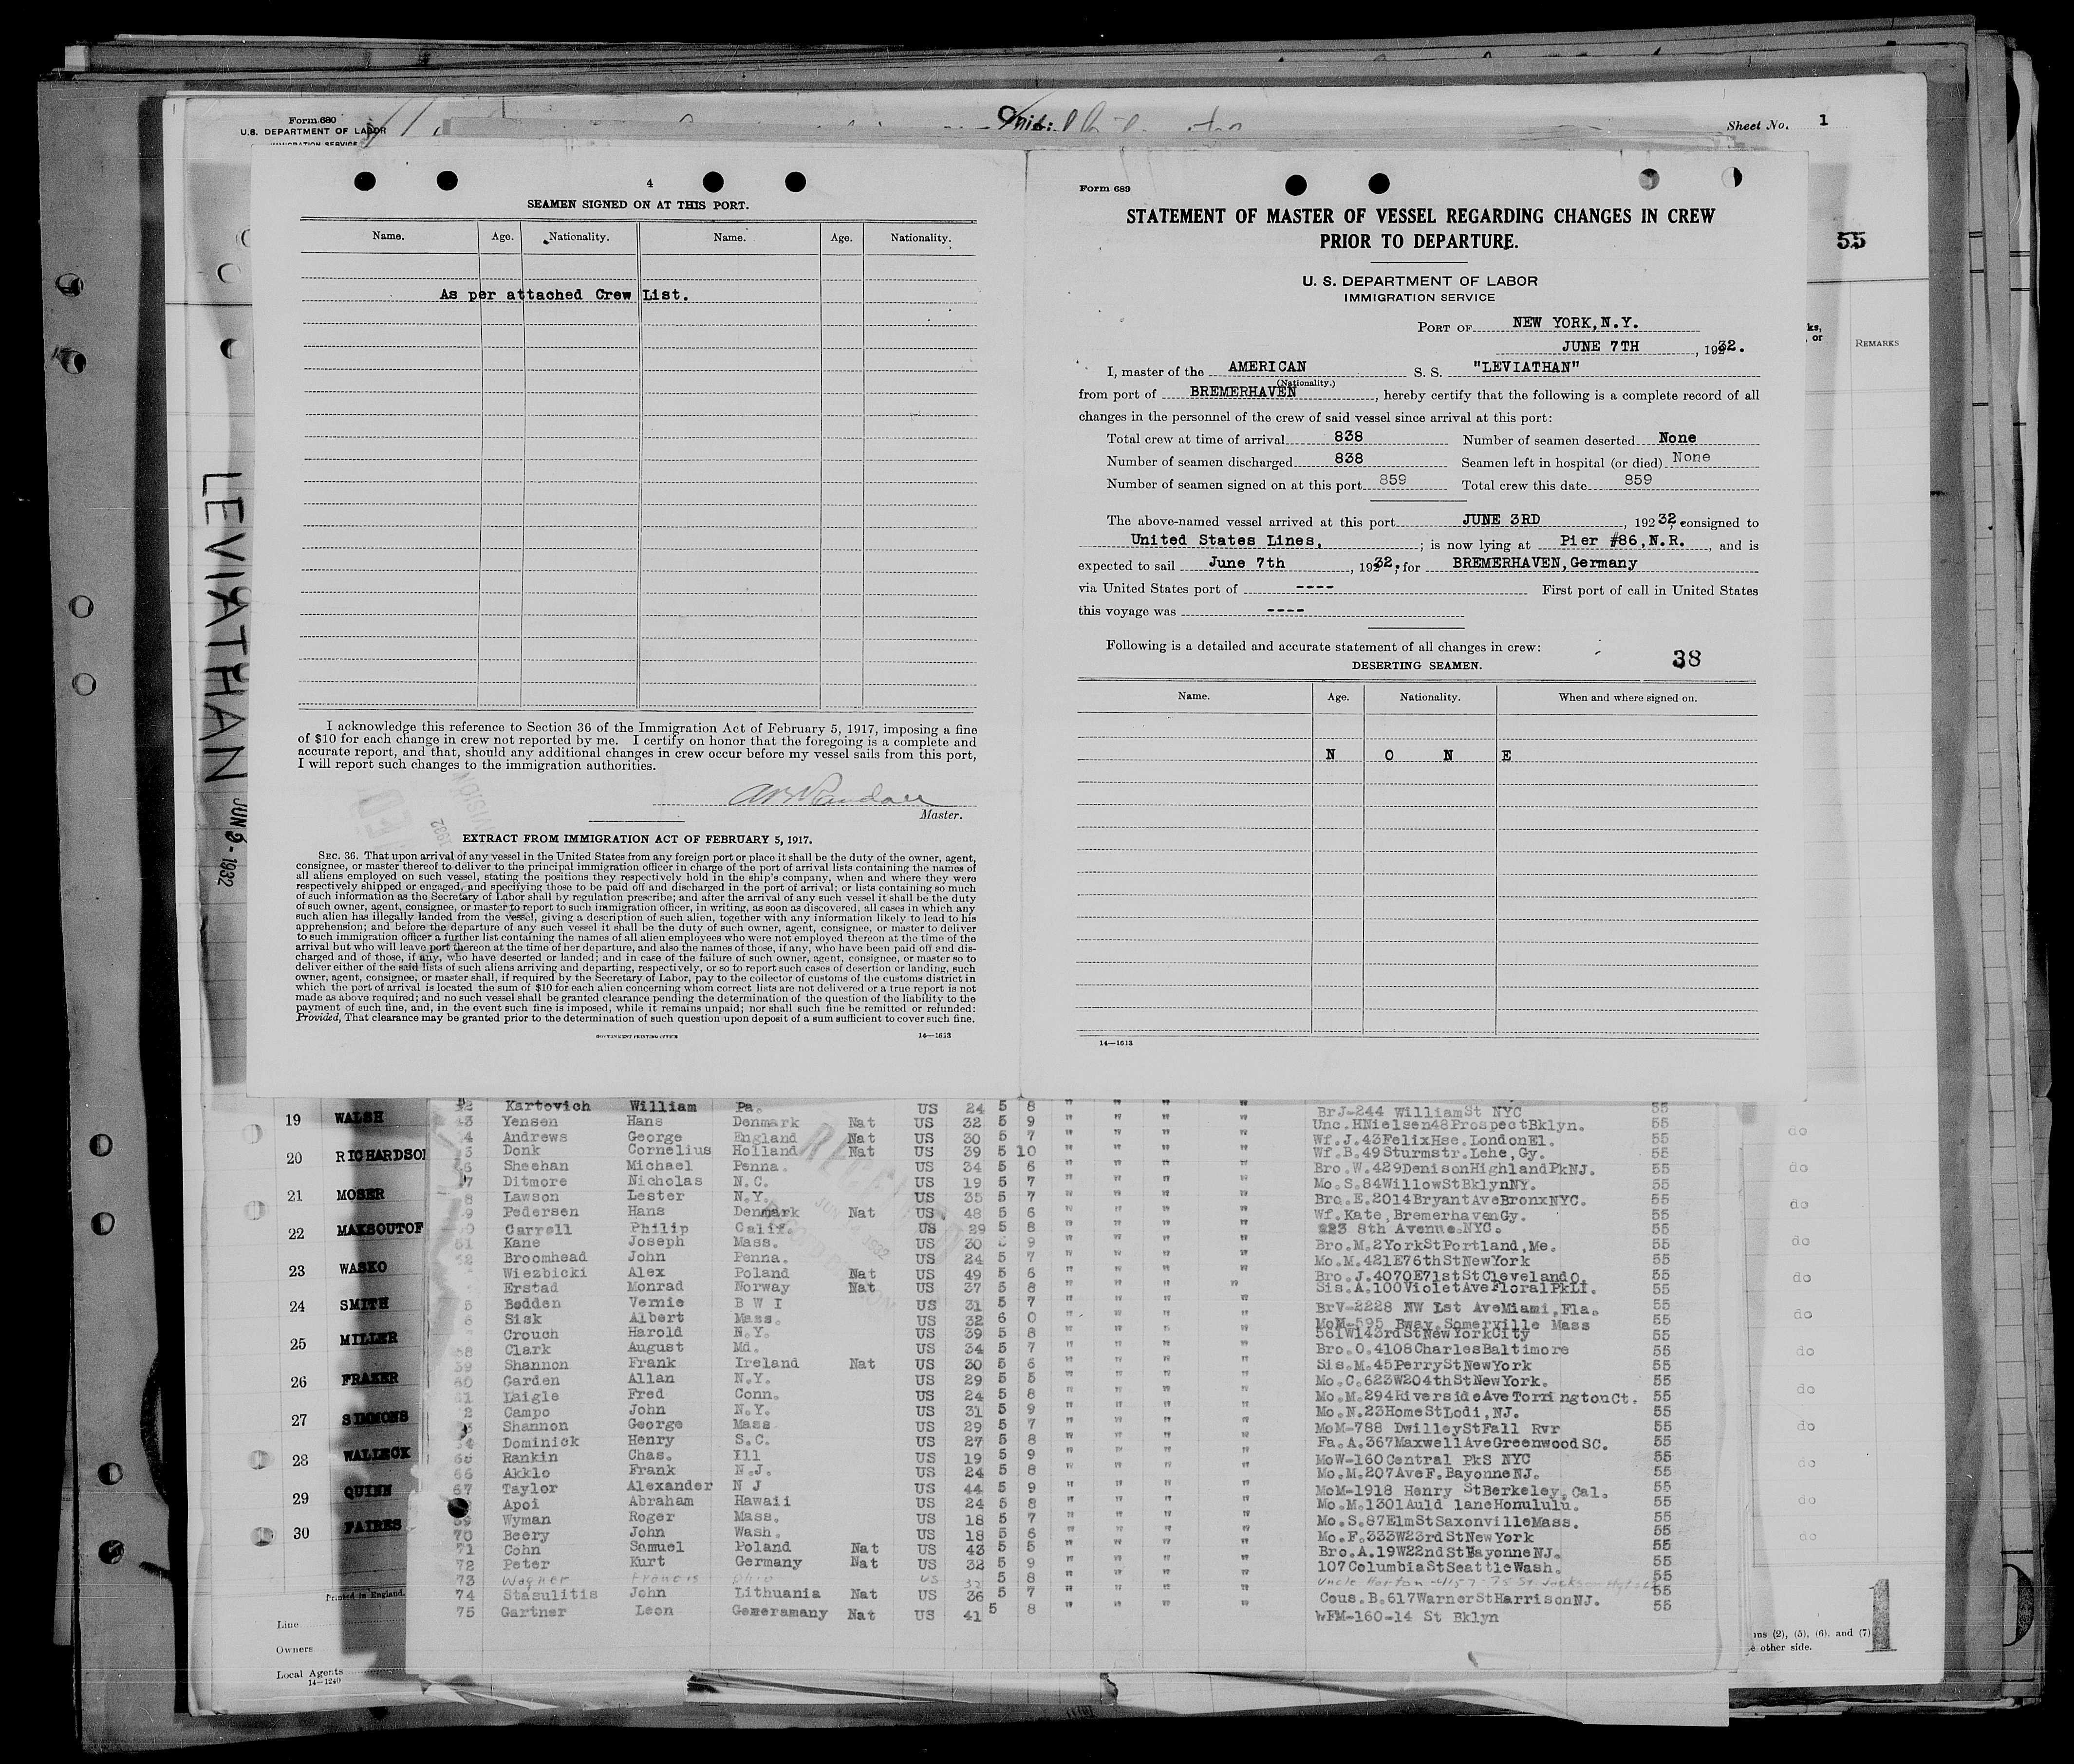 Form 680
U.S. DEPARTMENT OF LABOR
IMMIGRATION SERVICE
Sheet No. 1
55
REMARKS
LEVIATHAN
4
SEAMEN SIGNED ON AT THIS PORT.
Name. Age. Nationality. Name. Age. Nationality.
As per attached Crew List.
I acknowledge this reference to Section 36 of the Immigration Act of February 5, 1917, imposing a fine
of $10 for each change in crew not reported by me. I certify on honor that the foregoing is a complete and
accurate report, and that, should any additional changes in crew occur before my vessel sails from this port,
I will report such changes to the immigration authorities.
Master.
EXTRACT FROM IMMIGRATION ACT OF FEBRUARY 5, 1917.
SEC. 36. That upon arrival of any vessel in the United States from any foreign port or place it shall be the duty of the owner, agent,
consignee, or master thereof to deliver to the principal immigration officer in charge of the port of arrival lists containing the names of
all aliens employed on such vessel, stating the positions they respectively hold in the ship's company, when and where they were
respectively shipped or engaged, and specifying those to be paid off and discharged in the port of arrival; or lists containing so much
of such information as the Secretary of Labor shall by regulation prescribe; and after the arrival of any such vessel it shall be the duty
of such owner, agent, consignee, or master to report to such immigration officer, in writing, as soon as discovered, all cases in which any
such alien has illegally landed from the vessel, giving a description of such alien, together with any information likely to lead to his
apprehension; and before the departure of any such vessel it shall be the duty of such owner, agent, consignee, or master to deliver
to such immigration officer a further list containing the names of all alien employees who were not employed thereon at the time of the
arrival but who will leave port thereon at the time of her departure, and also the names of those, if any, who have been paid off and dis-
charged and of those, if any, who have deserted or landed; and in case of the failure of such owner, agent, consignee, or master so to
deliver either of the said lists of such aliens arriving and departing, respectively, or so to report such cases of desertion or landing, such
owner, agent, consignee, or master shall, if required by the Secretary of Labor, pay to the collector of customs of the customs district in
which the port of arrival is located the sum of $10 for each alien concerning whom correct lists are not delivered or a true report is not
made as above required; and no such vessel shall be granted clearance pending the determination of the question of the liability to the
payment of such fine, and, in the event such fine is imposed, while it remains unpaid; nor shall such fine be remitted or refunded:
Provided, That clearance may be granted prior to the determination of such question upon deposit of a sum sufficient to cover such fine.
GOVERNMENT PRINTING OFFICE 14—1613
Form 689
STATEMENT OF MASTER OF VESSEL REGARDING CHANGES IN CREW
PRIOR TO DEPARTURE.
U. S. DEPARTMENT OF LABOR
IMMIGRATION SERVICE
PORT OF NEW YORK, N.Y.
JUNE 7TH, 1932.
I, master of the AMERICAN S. S. "LEVIATHAN"
(Nationality.)
from port of BREMERHAVEN, hereby certify that the following is a complete record of all
changes in the personnel of the crew of said vessel since arrival at this port:
Total crew at time of arrival 838 Number of seamen deserted None
Number of seamen discharged 838 Seamen left in hospital (or died) None
Number of seamen signed on at this port 859 Total crew this date 859
The above-named vessel arrived at this port JUNE 3RD, 192 32, consigned to
United States Lines, ; is now lying at Pier #86, N.R., and is
expected to sail June 7th, 1932, for BREMERHAVEN, Germany
via United States port of ---- First port of call in United States
this voyage was ----
Following is a detailed and accurate statement of all changes in crew:
38
DESERTING SEAMEN.
Name. Age. Nationality. When and where signed on.
N O N E
14—1613
19 WALSH
20 RICHARDSO
21 MOSER
22 MAKSOUTOF
23 WASKO
24 SMITH
25 MILLER
26 FRAZER
27 SIMMONS
28 WALLECK
29 QUINN
30 FAIRES
Kartovich William Pa. US 24 5 8 " " " " BrJ-244 WilliamSt NYC 55
Yensen Hans Denmark Nat US 32 5 9 " " " " Unc.HNielsen48ProspectBklyn. 55
Andrews George England Nat US 30 5 7 " " " " Wf.J.43FelixHse.LondonEl. 55
Donk Cornelius Holland Nat US 39 5 10 " " " " Wf.B.49Sturmstr.Lehe,Gy. 55
Sheehan Michael Penna. US 34 5 6 " " " " Bro.W.429DenisonHighlandPkNJ. 55
Ditmore Nicholas N.C. US 19 5 7 " " " " Mo.S.84WillowStBklynNY. 55
Lawson Lester N.Y. US 35 5 7 " " " " Bro.E.2014BryantAveBronxNYC. 55
Pedersen Hans Denmark Nat US 48 5 6 " " " " Wf.Kate,BremerhavenGy. 55
Carrell Philip Calif. US 29 5 8 " " " " 223 8th Avenue.NYC. 55
Kane Joseph Mass. US 30 9 " " " " Bro.M.2YorkStPortland,Me. 55
Broomhead John Penna. US 24 5 7 " " " " Mo.M.421E76thStNewYork 55
Wiezbicki Alex Poland Nat US 49 5 6 " " " " Bro.J.4070E71stStClevelandO. 55
Erstad Monrad Norway Nat US 37 5 8 " " " " Sis.A.100VioletAveFloralPkLI. 55
Bodden Vernie B W I US 31 5 7 " " " " BrV-2228 NW 1st AveMiami,Fla. 55
Sisk Albert Mass. US 32 6 0 " " " " MoM-595 Bway Somerville Mass 55
Crouch Harold N.Y. US 39 5 8 " " " " 561W143rdStNewYorkCity 55
Clark August Md. US 34 5 7 " " " " Bro.O.4108CharlesBaltimore 55
Shannon Frank Ireland Nat US 30 5 6 " " " " Sis.M.45PerryStNewYork 55
60 Garden Allan N.Y. US 29 5 5 " " " " Mo.C.623W204thStNewYork. 55
Laigle Fred Conn. US 24 5 8 " " " " Mo.M.294RiversideAveTorringtonCt. 55
Campo John N.Y. US 31 5 9 " " " " Mo.N.23HomeStLodi,NJ. 55
Shannon George Mass US 29 5 7 " " " " MoM-788 DwilleyStFall Rvr 55
Dominick Henry S.C. US 27 5 8 " " " " Fa.A.367MaxwellAveGreenwoodSC. 55
Rankin Chas. Ill US 19 5 9 " " " " MoW-160Central PkS NYC 55
66 Akklo Frank N.J. US 24 5 8 " " " " Mo.M.207AveF.BayonneNJ. 55
67 Taylor Alexander N J US 44 5 9 " " " " MoM-1918 Henry StBerkeley,Cal. 55
Apoi Abraham Hawaii US 24 5 8 " " " " Mo.M.1301Auld laneHonululu. 55
Wyman Roger Mass. US 18 5 7 " " " " Mo.S.87ElmStSaxonvilleMass. 55
70 Beery John Wash. US 18 5 6 " " " " Mo.F.333W23rdStNewYork 55
71 Cohn Samuel Poland Nat US 43 5 5 " " " " Bro.A.19W22ndStBayonneNJ. 55
72 Peter Kurt Germany Nat US 32 5 9 " " " " 107ColumbiaStSeattleWash. 55
73 Wagner Francis Ohio US 5 8 " " " " 55
74 Stasulitis John Lithuania Nat US 36 5 7 " " " " Cous.B.617WarnerStHarrisonNJ. 55
75 Gartner Leon Gemeramany Nat US 41 5 8 " " " " WFM-160-14 St Bklyn
do
do
do
do
do
do
do
do
do
do
do
do
Printed in England.
Line
Owners
Local Agents
14—1240
(2), (5), (6), and (7)
other side.
1
JUN 3 - 1932
RECEIVED